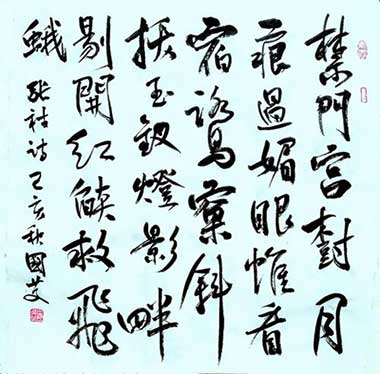 禁門宮樹月
痕過媚眼惟看
宿鷺窠斜
拔玉釵燈影畔
剔開紅燄救飛
蛾 張祜詩 己亥秋國艾